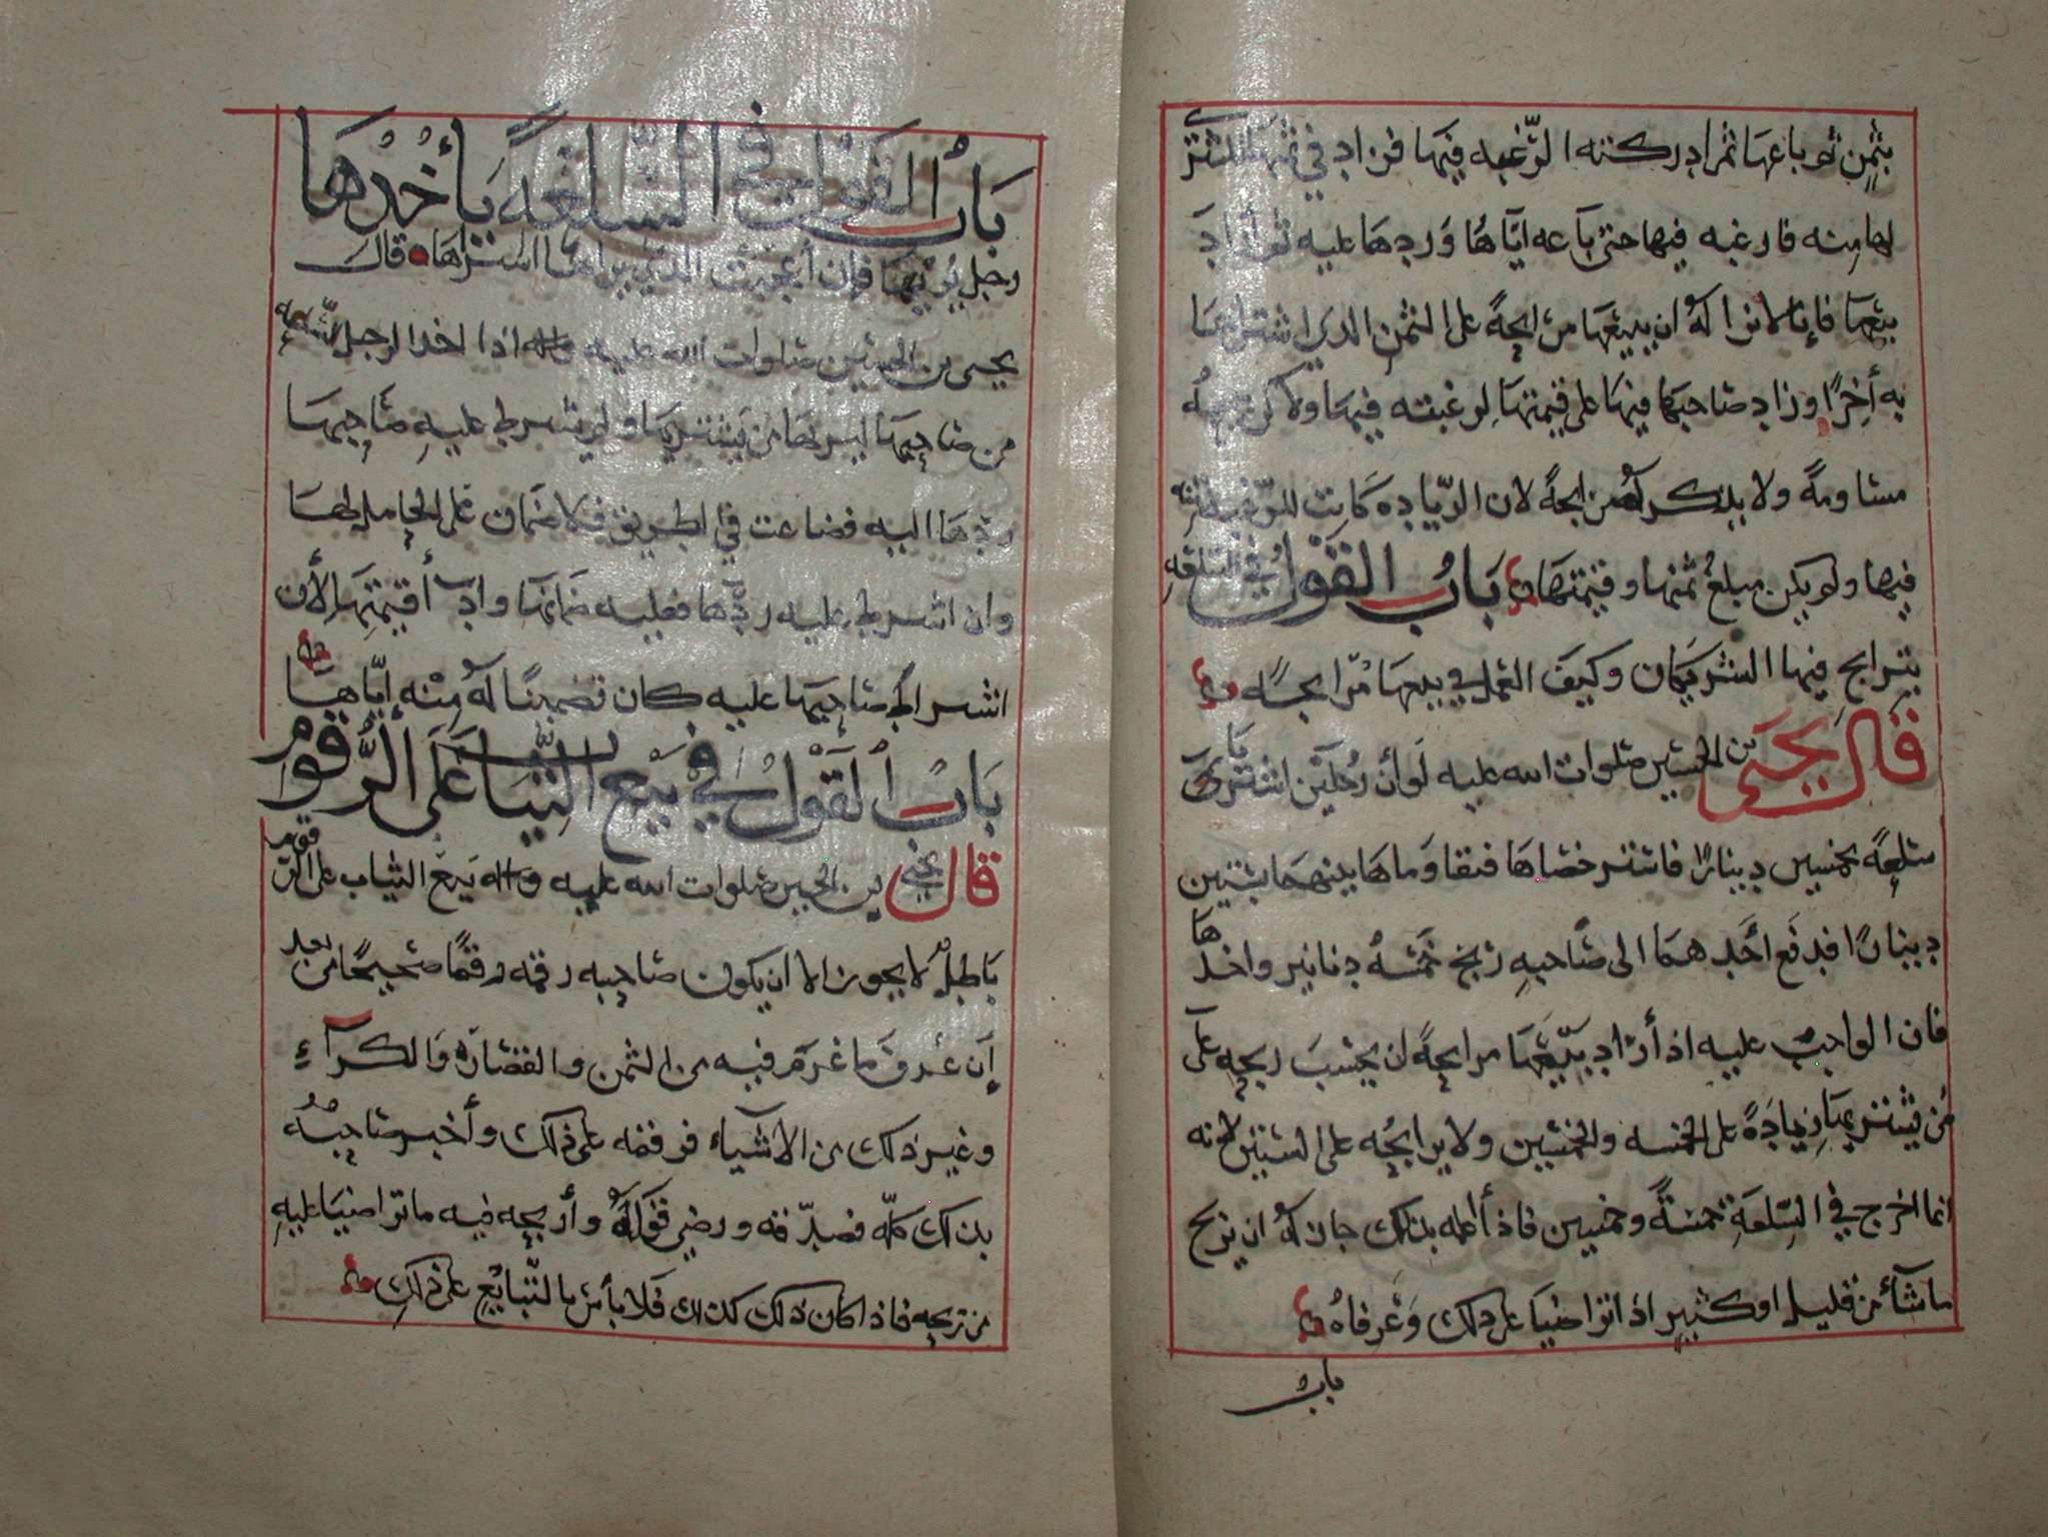 بثمن ثم باعها ثم ادركته الرّغبه فيها فزاد في ثمنها المشترى
لها منه فارغبه فيها حتى باعه اياها وردها عليه ثم أراد
بيعها فإنا لا نرا له ان يبيعها مرابحةً على الثمن الذي اشتراها
به أخرًا وزاد صاحبها فيها على قيمتها لرغبته فيها ولاكن يبيعه
مساومةً ولا يذكر له مرابحةً لان الزّياده كانت للرّغبة
فيها ولم يكن مبلغ ثمنها وقيمتها باب القول في السلعه
يترابح فيها الشريكان وكيف العمل في بيعها مرّابحه
قال يحيى بن الحسين صلوات الله عليه لو أن رجلين اشتريا
سلعةً بخمسين دينارًا فاستر خصاها فنفقا وماها بينهما بستين
دينارًا فدفع أحدهما الى صاحبهِ ربح خمسهُ دنانير واخذها
فان الواجب عليه اذ أراد بيّعها مرابحةً ان يحسب ربحه على
من يشتريها زيادةً على الخمسه والخمسين ولا يرابحُه على الستين لانه
انما اخرج في السِّلعةِ خمسةً وخمسين فاذ أعلمه بذلك جاز لهُ ان يربح
ما شآء من قليل او كثير اذ اتراضيا على ذلك وعرفاهُ
باب
بَابُ القول في السّلعةِ يأخُذها
رجل يُرْيهَا فإن أعجبت الذي يراها اشتراها قال
يحيى بن الحسين صلوات الله عليه واله اذا اخذ الرجل السّلعه
من صاحبها ليريها من يشتريها ولم يشرط عليهِ صاحبها
ردها اليه فضاعت في الطريق فلا ضمان على الحامل لها
وان اشرط عليه ردّها فعليه ضمانها وادآ قيمتها لأن
اشراط صاحبها عليه كان تضمينًا لهُ منه إيّاها
بابُ القَوْل في بَيْع الثِّيَاب عَلَى الرُّقوم
قال يحيى بن الحسين صلوات الله عليه واله بَيْع الثياب على الرّقوم
باطلٌ لا يجوز الا ان يكون صاحبه رقمه رقمًا صحيحًا من بعد
أن عرف ما غرم فيه من الثمن والقصاره والكرآء
وغير ذلك من الاشياء فرقمه على ذلك وأخبر صاحبهُ
بذلك كلّه فصدّقه ورضي قولهُ وأربحه فيه ما تراضيا عليهِ
من تربحه فاذ اكان ذلك كذلك فلا بأس بالتّبايُع على ذلك